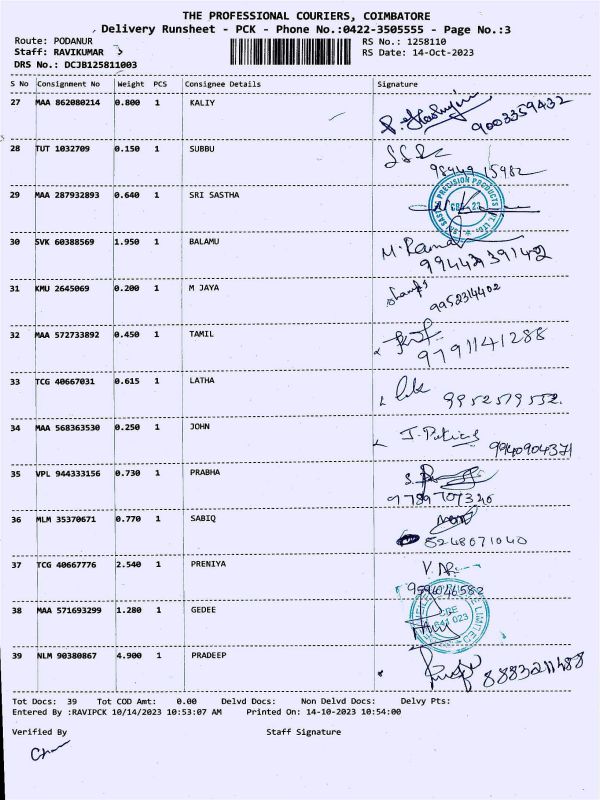 THE PROFESSIONAL COURIERS, COIMBATORE
Delivery Runsheet - PCK - Phone No.:0422-3505555 - Page No.:3
Route: PODANUR RS No.: 1258110
Staff: RAVIKUMAR RS Date: 14-Oct-2023
DRS No.: DCJB125811003
S No Consignment No Weight PCS Consignee Details Signature
27 MAA 862080214 0.800 1 KALIY
9003359432
28 TUT 1032709 0.150 1 SUBBU
29 MAA 287932893 0.640 1 SRI SASTHA
PRECISION PRODUCTS
30 SVK 60388569 1.950 1 BALAMU
31 KMU 2645069 0.200 1 M JAYA
9952314402
32 MAA 572733892 0.450 1 TAMIL
9791141288
33 TCG 40667031 0.615 1 LATHA
9952579532.
34 MAA 568363530 0.250 1 JOHN
9940904371
35 VPL 944333156 0.730 1 PRABHA
9789707320
36 MLM 35370671 0.770 1 SABIQ
8248071040
37 TCG 40667776 2.540 1 PRENIYA
38 MAA 571693299 1.280 1 GEDEE
39 NLM 90380867 4.900 1 PRADEEP
8883211488
Tot Docs: 39 Tot COD Amt: 0.00 Delvd Docs: Non Delvd Docs: Delvy Pts:
Entered By :RAVIPCK 10/14/2023 10:53:07 AM Printed On: 14-10-2023 10:54:00
Verified By Staff Signature